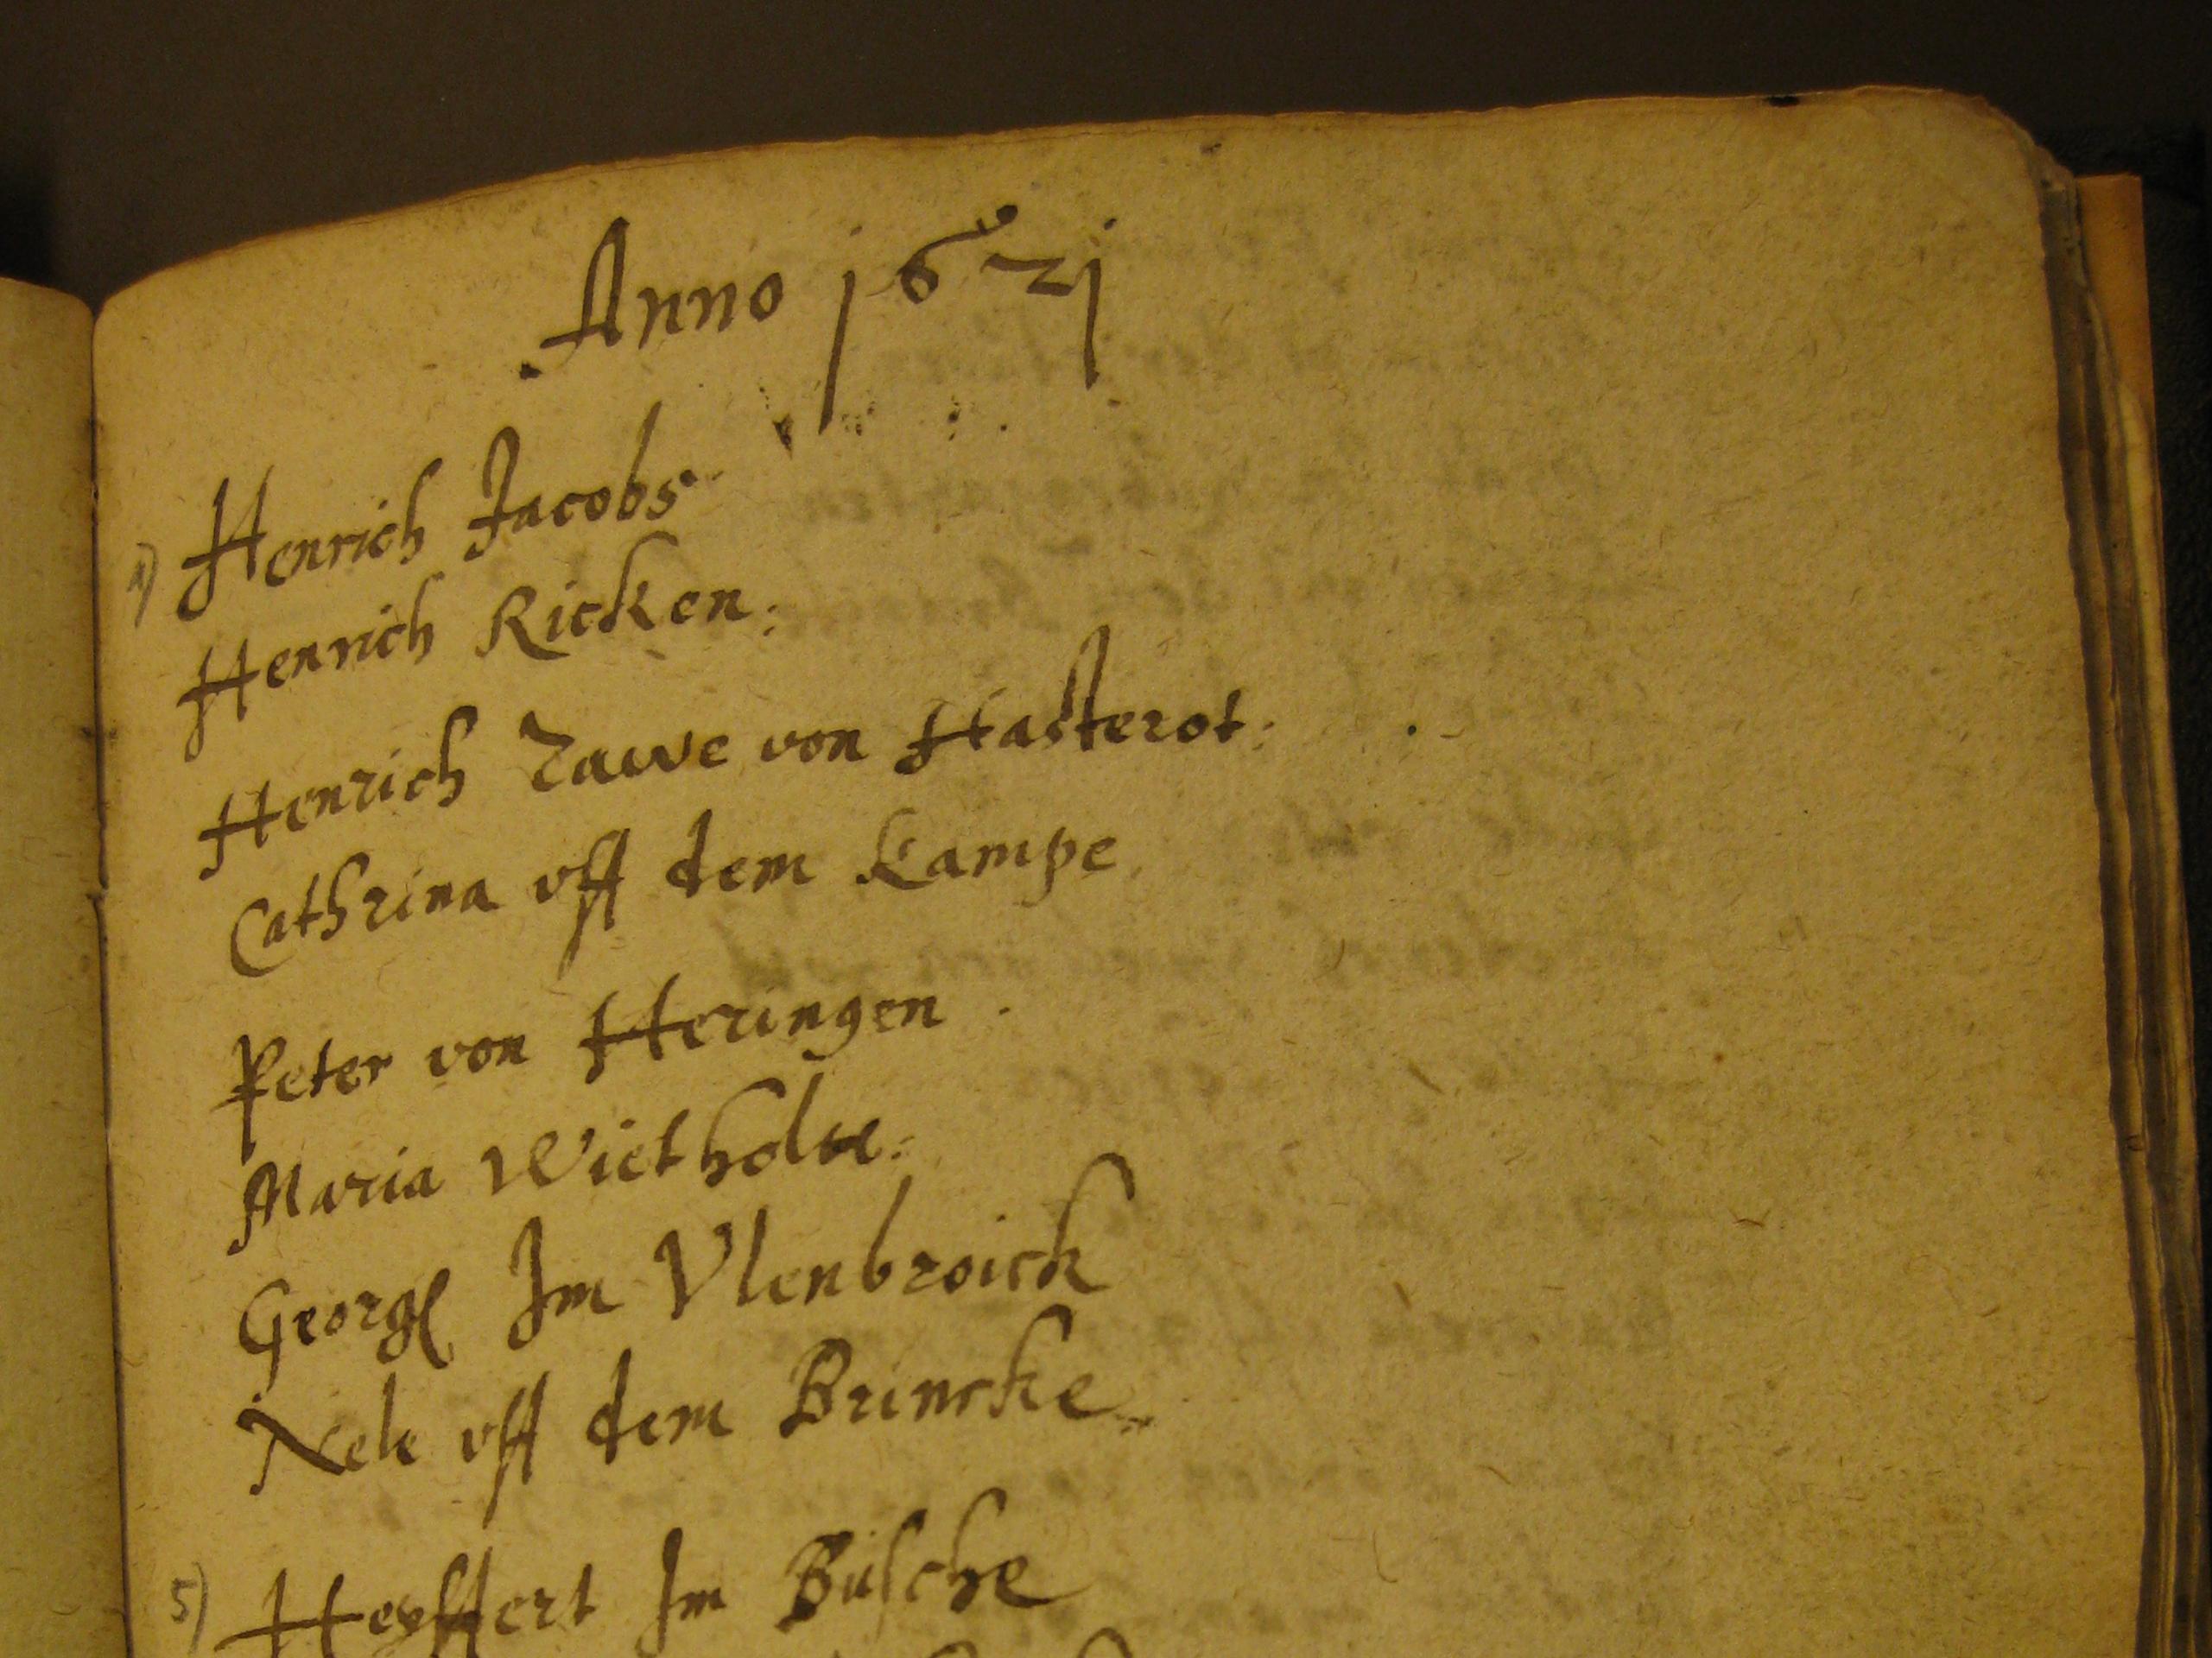 Anno 1621
1) Henrich Jacobs
Henrich Ricken:
Henrich Tawe von Hasterot:
Cathrina vff dem Kampe
Peter von Heringen.
Maria Wietholtt:
Georgl Im Vlenbroick
Nele vff dem Brincke
5) Heyffert Im Busche